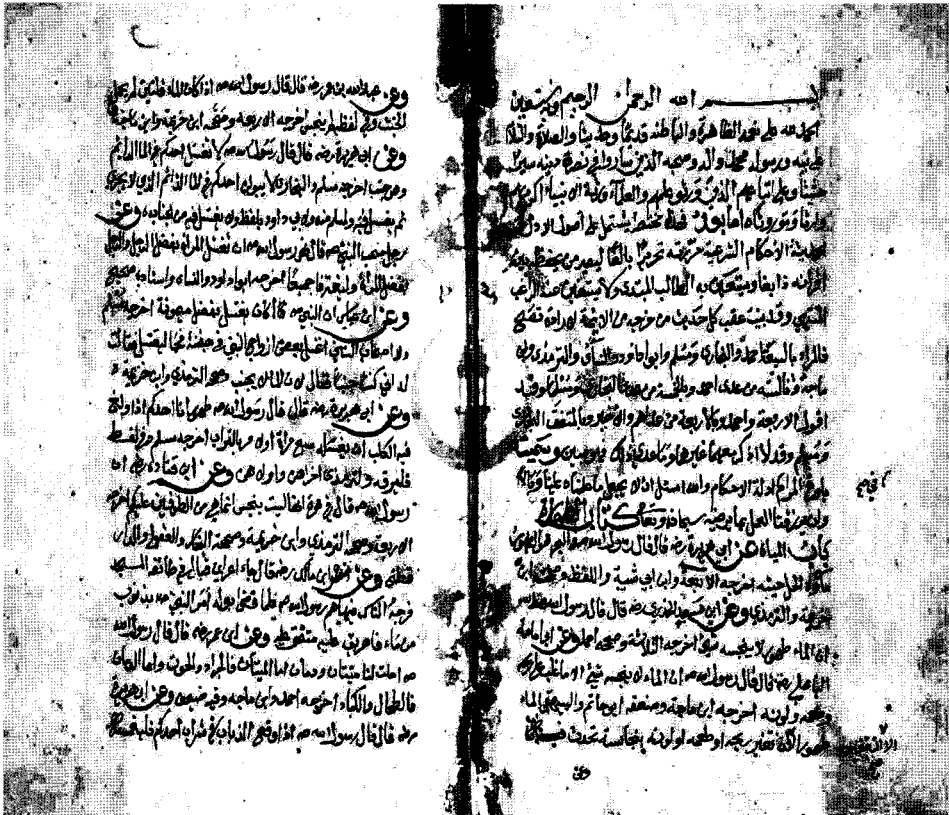 بسم الله الرحمن الرحيم وبه نستعين
الحمد لله على نعمه الظاهرة والباطنة قديما وحديثا والصلاة والسلام
على نبيه ورسوله محمد وآله وصحبه الذين ساروا في نصرة دينه سيرا
حثيثا وعلى اتباعهم الذين ورثوا علمهم والعلماء ورثة الانبياء اكرم بهم
وارثا وموروثا اما بعد فهذا مختصر يشتمل على اصول الادلة
الحديثية الاحكام الشرعية حررته تحريرا بالغا ليصير من يحفظه من بين
اقرانه نابغا ويستعين به الطالب المبتدي ولا يستغني عنه الراغب
المنتهي وقد بينت عقب كل حديث من خرجه من الائمة لارادة نصح
فالمراد بالسبعة احمد والبخاري ومسلم وابو داود والنسائي والترمذي وابن
ماجة وبالستة من عدى احمد وبالخمسة من عدا البخاري ومسلما وقد
اقول الاربعة واحمد وبالاربعة من عداهم والمتفق البخاري
ومسلم وقد لا اذكر معهما غيرهما وما عدى ذلك فهو مبين وسميته
بلوغ المرام ادلة الاحكام والله اسئل ان لا يجعل ما علمناه علينا وبالا
وان يرزقنا العمل بما يرضيه سبحانه وتعالى كتاب الطهارة
باب المياه عن ابي هريرة رضه قال قال رسول الله صه في البحر هو الطهور
ماؤه الحل ميتته اخرجه الاربعة وابن ابي شيبة واللفظ له وصححه ابن
خزيمة والترمذي وعن ابي سعيد الخدري رضه قال قال رسول الله صه
ان الماء طهور لا ينجسه شيء اخرجه الثلاثة وصححه احمد وعن ابي امامة
الباهلي رضه قال قال رسول الله صه ان الماء لا ينجسه شيء الا ما غلب على ريحه
وطعمه ولونه اخرجه ابن ماجة وضعفه ابو حاتم والبيهقي الماء
طهور الا ان تغير ريحه او طعمه او لونه بنجاسة تحدث فيه
وعن
وعن عبد الله بن عمر رضه قال قال رسول الله صه اذا كان الماء قلتين لم يحمل
الخبث وفي لفظ لم ينجس اخرجه الاربعة وصححه ابن خزيمة وابن
وعن ابي هريرة رضه قال قال رسول الله صه لا يغتسل احدكم في الماء الدائم
وهو جنب اخرجه مسلم والبخاري لا يبولن احدكم في الماء الدائم الذي لا يجري
ثم يغتسل فيه ولمسلم منه ولابي داود ولا يغتسل فيه من الجنابة وعن
رجل صحب النبي صه قال نهى رسول الله صه ان تغتسل المراة بفضل الرجل والرجل
بفضل المراة وليغترفا جميعا اخرجه ابو داود والنسائي واسناده صحيح
وعن ابن عباس ان النبي صه كان يغتسل بفضل ميمونة اخرجه مسلم
ولاصحاب السنن اغتسل بعض ازواج النبي في جفنة فجاء ليغتسل فقالت
له اني كنت جنبا فقال ان الماء لا يجنب وصححه الترمذي وابن خزيمة
وعن ابي هريرة رضه قال قال رسول الله صه طهور اناء احدكم اذا ولغ
فيه الكلب ان يغسله سبع مراة اولاهن بالتراب اخرجه مسلم وفي لفظ
فليرقه وللترمذي اخراهن او اولاهن وعن ابي قتادة رضه ان
رسول الله صه قال في الهرة انها ليست بنجس انما هي من الطوافين عليكم اخرجه
الاربعة وصححه الترمذي وابن خزيمة
وعن انس ابن مالك رضه قال جاء اعرابي فبال في طائفة المسجد
فزجره الناس فنهاهم رسول الله صه فلما قضى بوله امر النبي صه بذنوب
من ماء فاهريق عليه متفق عليه وعن ابن عمر رضه قال قال رسول الله
صه احلت لنا ميتتان ودمان اما الميتتان فالجراد والحوت واما الدمان
فالطحال والكباد اخرجه احمد وابن ماجه وفيه ضعف وعن ابي هريرة
رضه قال قال رسول الله صه اذا وقع الذباب في شراب احدكم فليغمسه